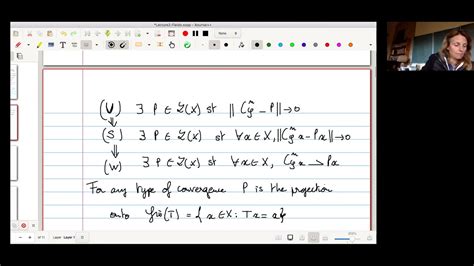 (U) ∃ P ∈ ℒ(X) st ‖ C_φ^n − P‖→0
⇓
(S) ∃ P ∈ ℒ(X) st ∀x∈X, ‖C_φ^n x − Px‖→0
⇓
(W) ∃ P ∈ ℒ(X) st ∀x∈X, C_φ^n x ⇀ Px
For any type of convergence P is the projection
onto Fix(T) = { x∈X : Tx = x}
Layer 1